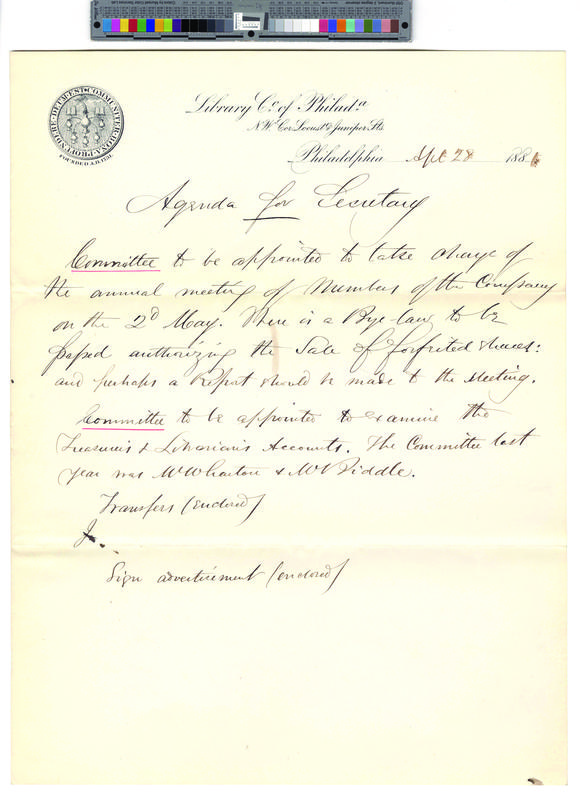 COMMUNITER BONA PROFUNDERE DEUM EST
FOUNDED A.D. 1731
Library Co. of Philada.
N.W. Cor Locust & Juniper Sts.
Philadelphia Apl 28 188
Agenda for Secretary
Committee to be appointed to take charge of
the annual meeting of Members of the Company
on the 2D May. There is a Bye-law to be
passed authorizing the Sale of forfeited shares:
and perhaps a Report should be made to the Meeting.
Committee to be appointed to examine the
Treasurer's & Librarian's Accounts. The Committee last
year was Mr Wharton & Mr Biddle.
Transfers (enclosed)
Sign advertisement (enclosed)